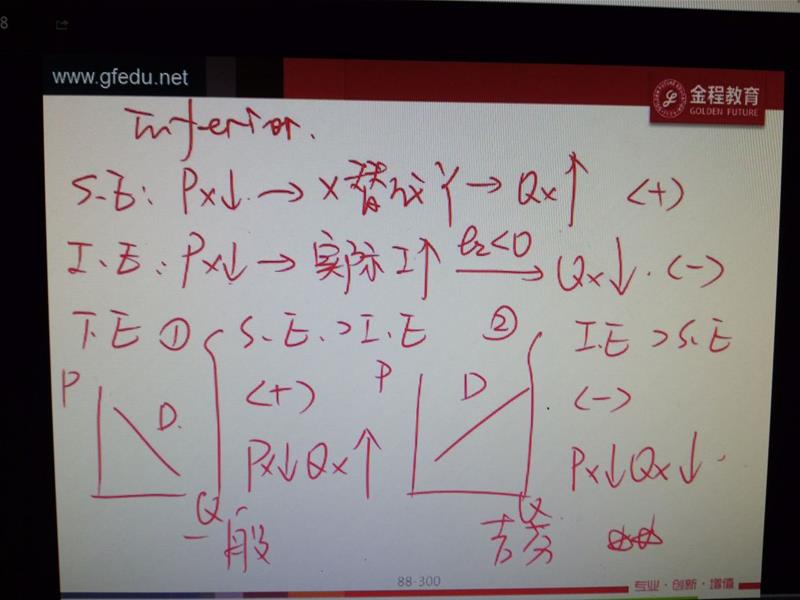 8
www.gfedu.net
金程教育
GOLDEN FUTURE
Inferior.
S.E: Px↓ → X替代Y → Qx↑ (+)
I.E: Px↓ → 实际I↑ e₂<0 → Qx↓. (-)
T.E ① S.E.>I.E ② I.E>S.E
P D. (+) P D (-)
Px↓Qx↑ Px↓Qx↓.
Q Q
一般 吉芬
88-300
专业·创新·增值